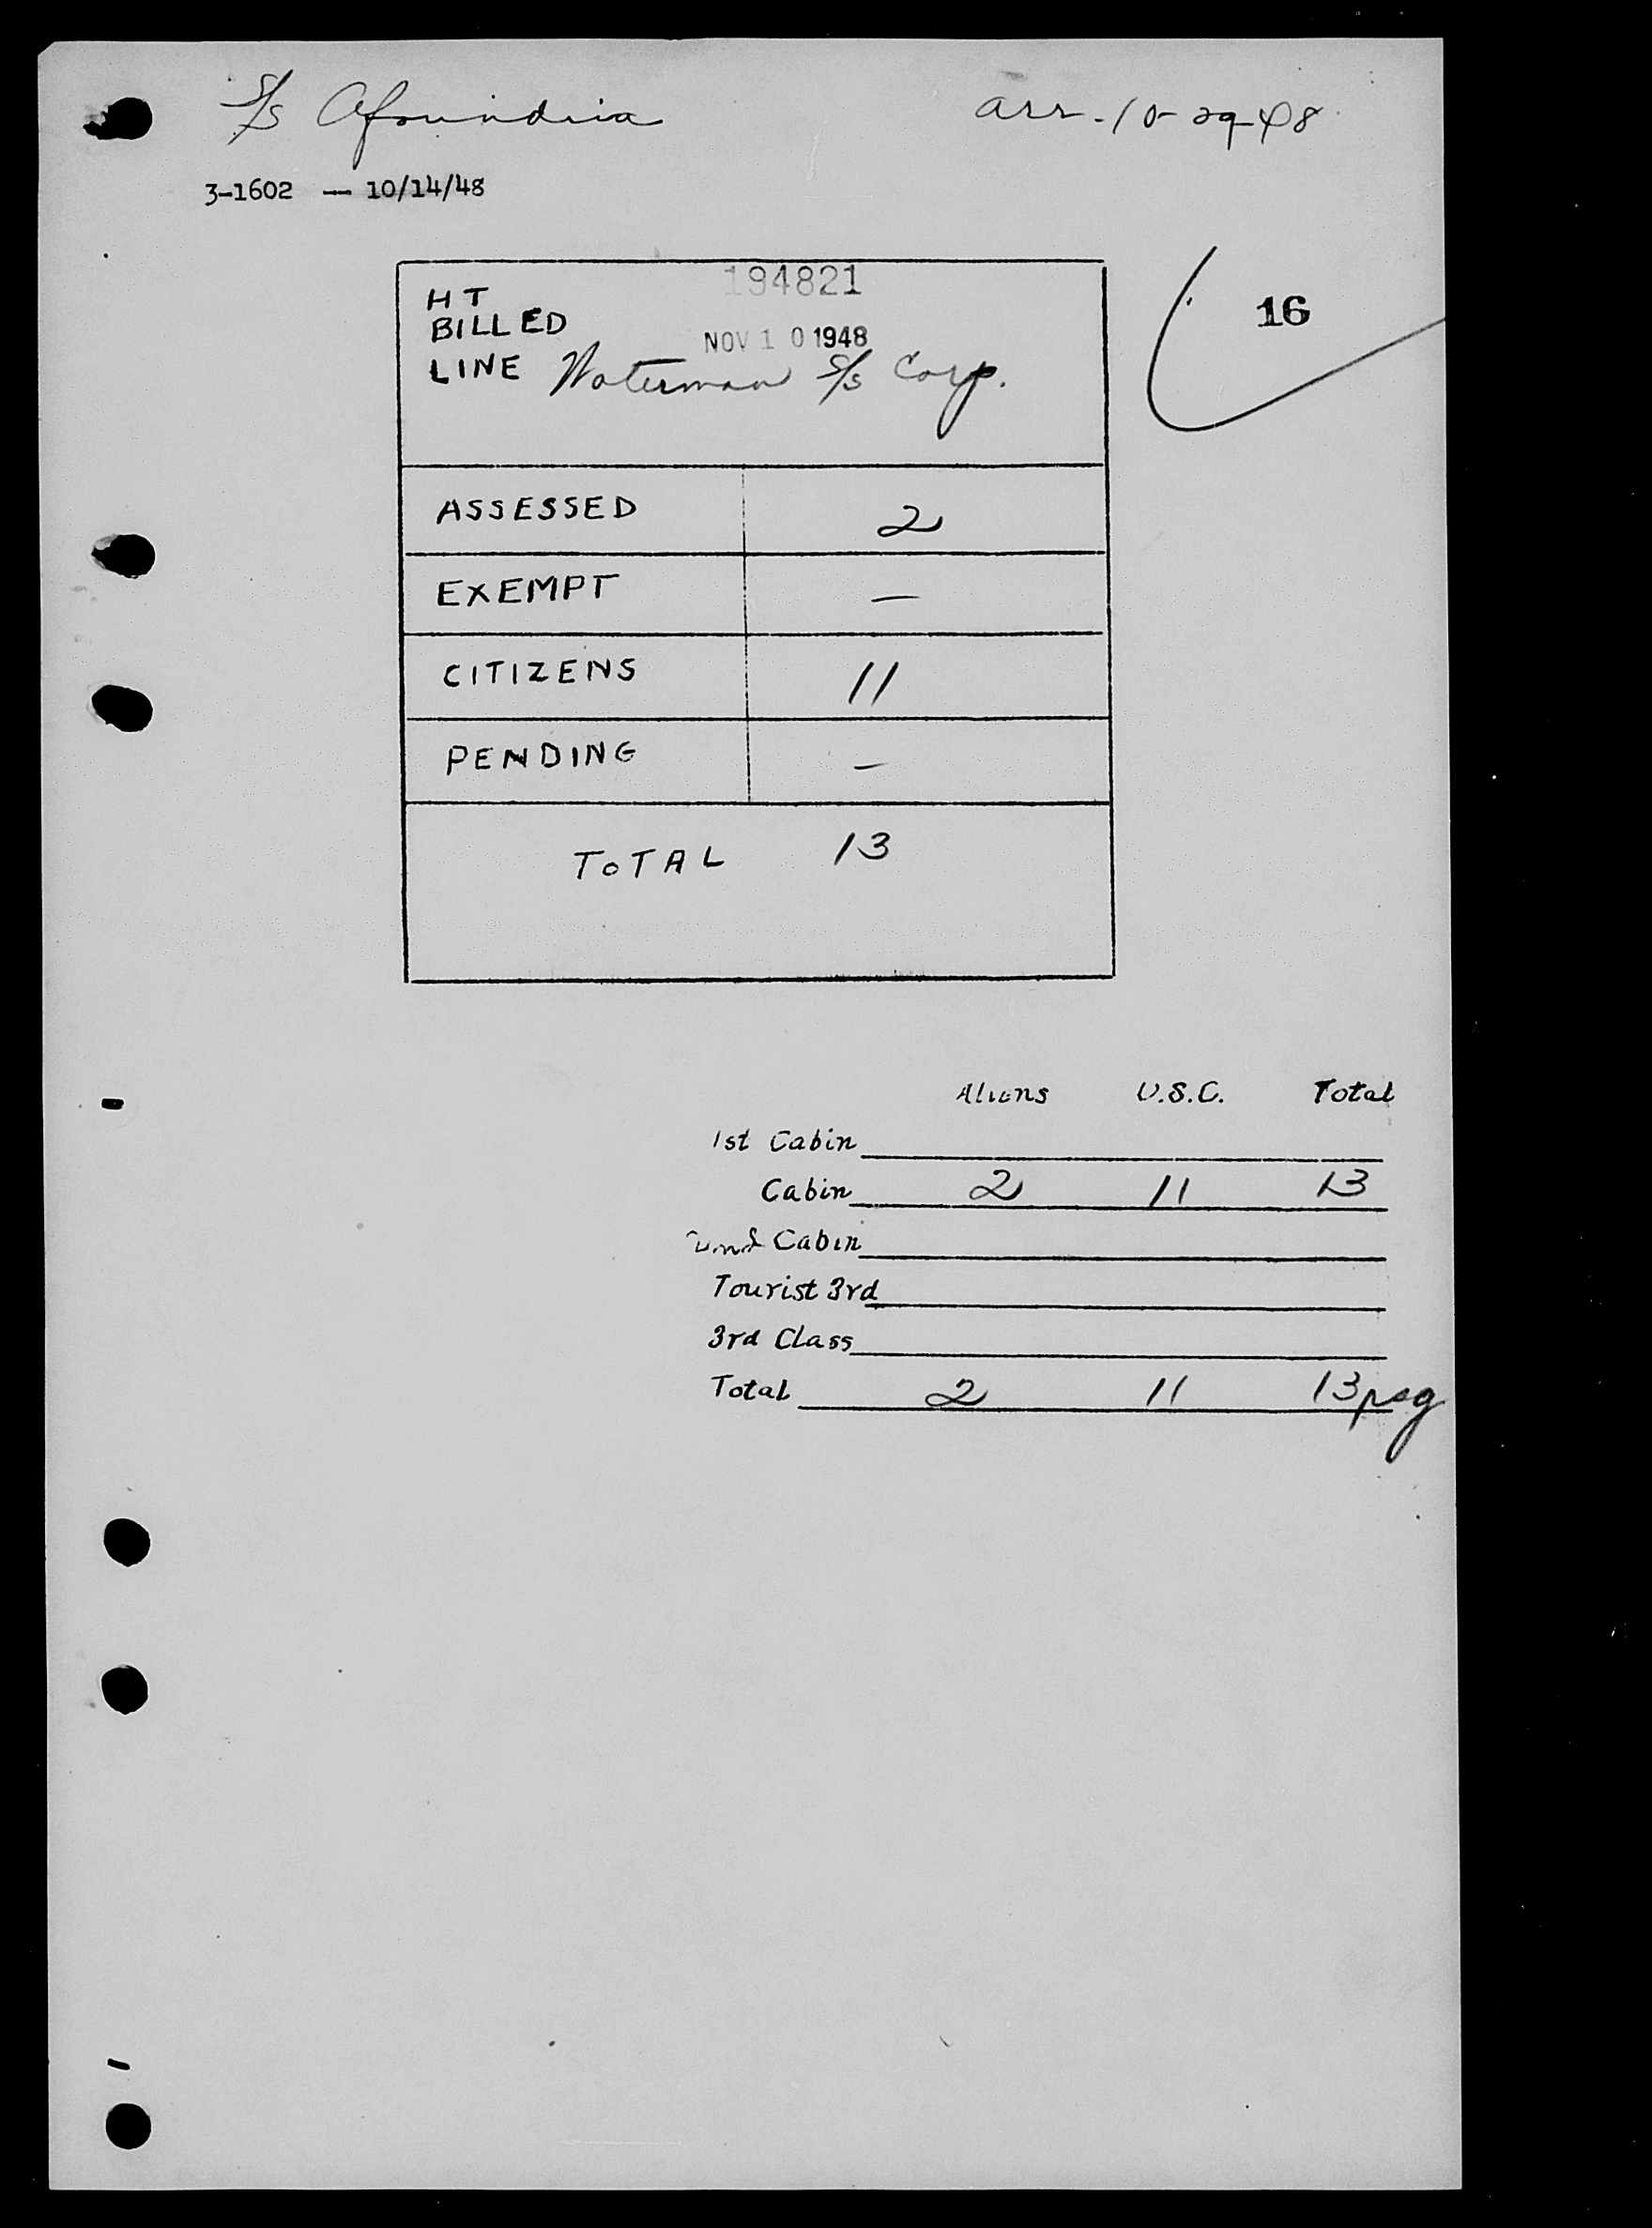 S/s Afoundria arr. 10-29-48
3-1602 — 10/14/48
194821
HT
BILLED
NOV 10 1948
LINE Waterman S/s Corp.
16
ASSESSED 2
EXEMPT —
CITIZENS 11
PENDING —
TOTAL 13
Aliens U.S.C. Total
1st Cabin
Cabin 2 11 13
Cabin
Tourist 3rd
3rd Class
Total 2 11 13 psg